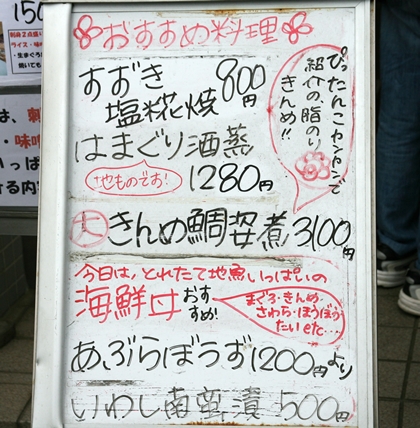 150
おすすめ料理
すずき
塩糀焼 800円
ぴったんこカンカンで
紹介の脂のり
きんめ!!
はまぐり酒蒸
地ものです! 1280円
大 きんめ鯛姿煮 3100円
今日は、とれたて地魚いっぱいの
海鮮丼 おすすめ!
まぐろ・きんめ・
さわら・ほうぼう
たいetc…
あぶらぼうず1200円より
いわし南蛮漬 500円